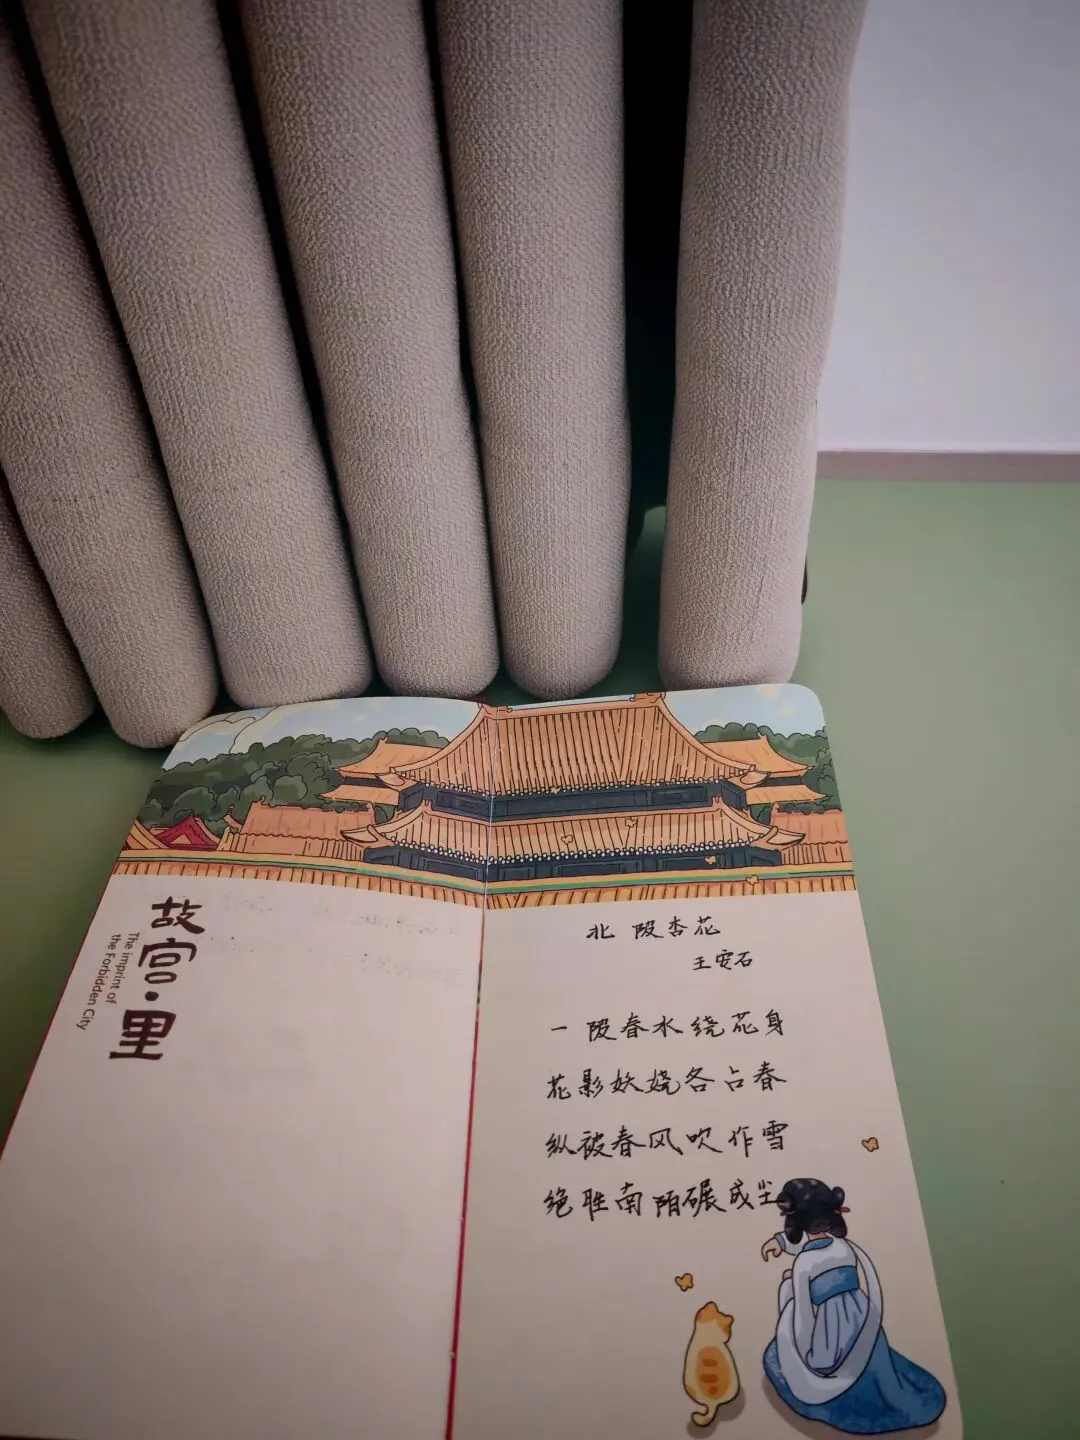 故宫·里
The imprint of
the Forbidden City
北陂杏花
王安石
一陂春水绕花身
花影妖娆各占春
纵被春风吹作雪
绝胜南陌碾成尘